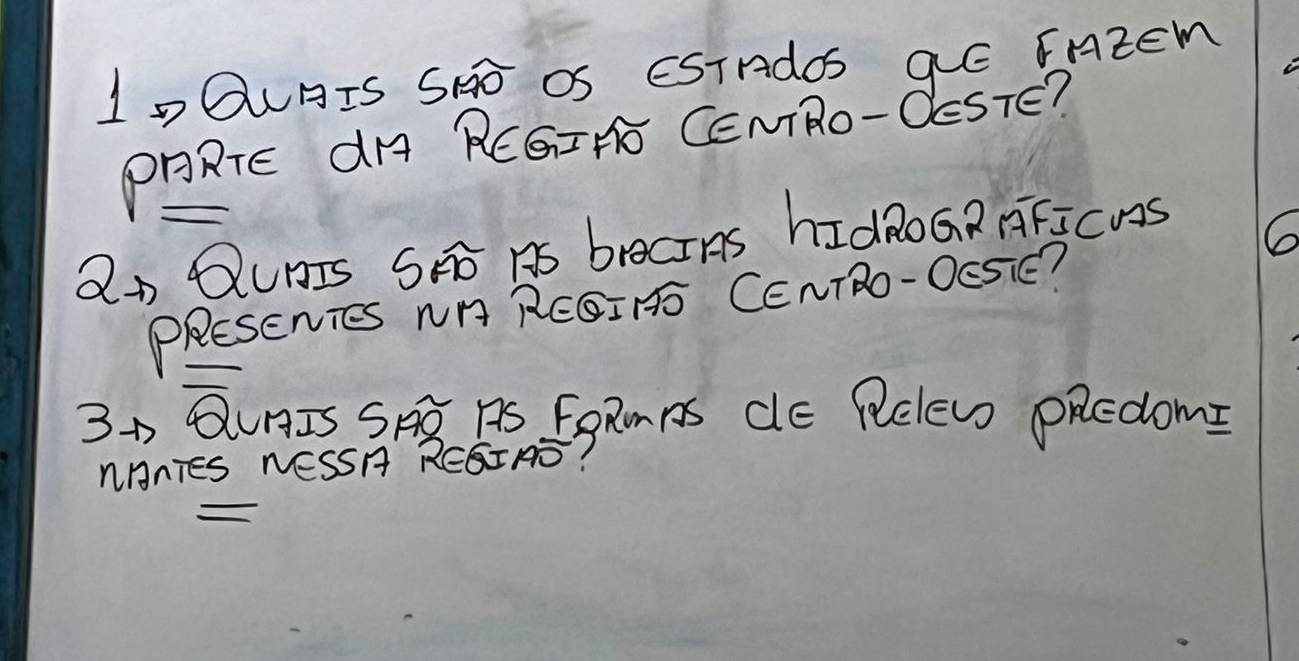 1→ QUAIS SÃO OS ESTADOS QUE FAZEM
PARTE DA REGIÃO CENTRO-OESTE?
2→ QUAIS SÃO AS BACIAS HIDROGRÁFICAS
PRESENTES NA REGIÃO CENTRO-OESTE?
3→ QUAIS SÃO AS FORMAS DE RELEVO PREDOMI
NANTES NESSA REGIÃO?
6